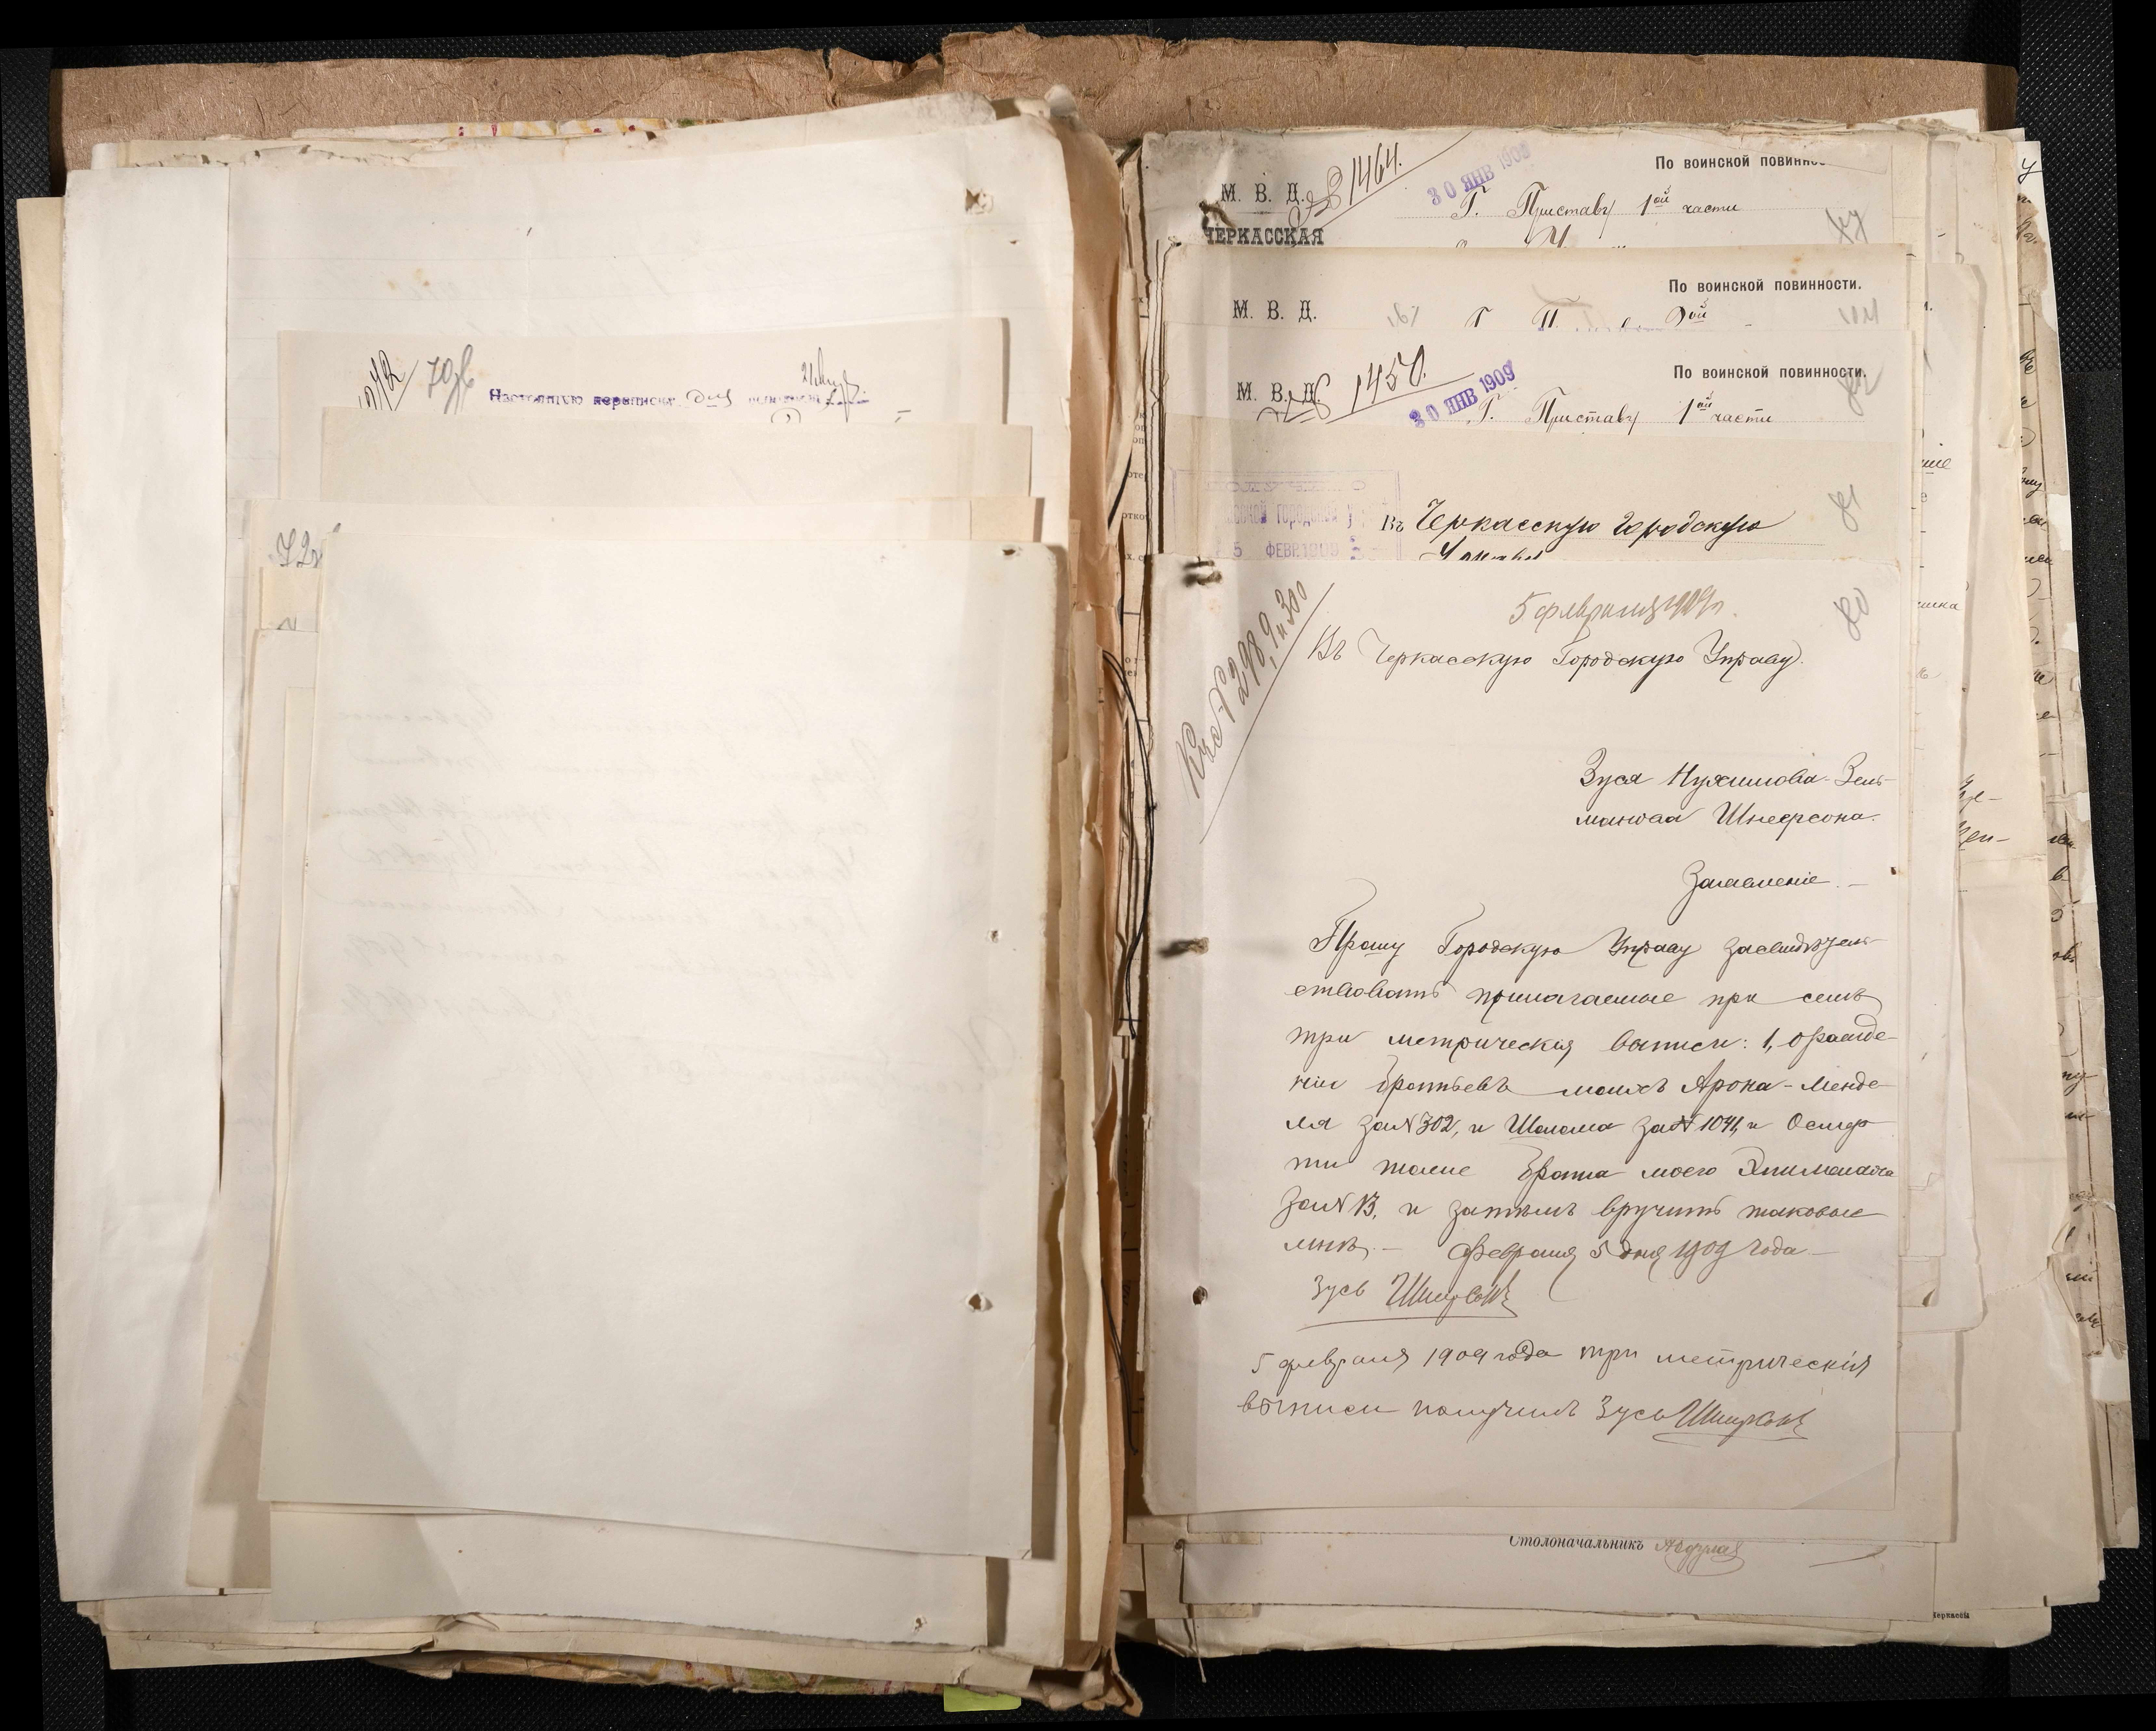 70об
Настоящую переписку
72
По воинской повинно
М. В. Д.
№ 1464.
30 ЯНВ 1909
Г. Приставу 1ой части
ЧЕРКАССКАЯ
По воинской повинности.
М. В. Д.
По воинской повинности.
М. В. Д.
№ 1450.
30 ЯНВ 1909
Г. Приставу 1ой части
Въ Черкасскую Городскую
5 ФЕВР 1909
81
80
5 февраля 1909 г.
Въ Черкасскую Городскую Управу.
№ 298, 9 и 300
Зуся Нухимова-Зель-
манова Шнеерсона.
Заявленіе.—
Прошу Городскую Управу засвидѣтель-
ствовать прилагаемые при семъ
три метрическія выписи: 1, о рожде-
ніи братьевъ моихъ Арона-Менде-
ля за № 302, и Шолома за № 1041, и о смер-
ти тоже брата моего
за № 13, и затѣмъ вручить таковые
мнѣ.— Февраля 5 дня 1909 года—
Зусь Шнеерсонъ
5 февраля 1909 года три метрическія
выписи получилъ Зусь Шнеерсонъ
Столоначальникъ